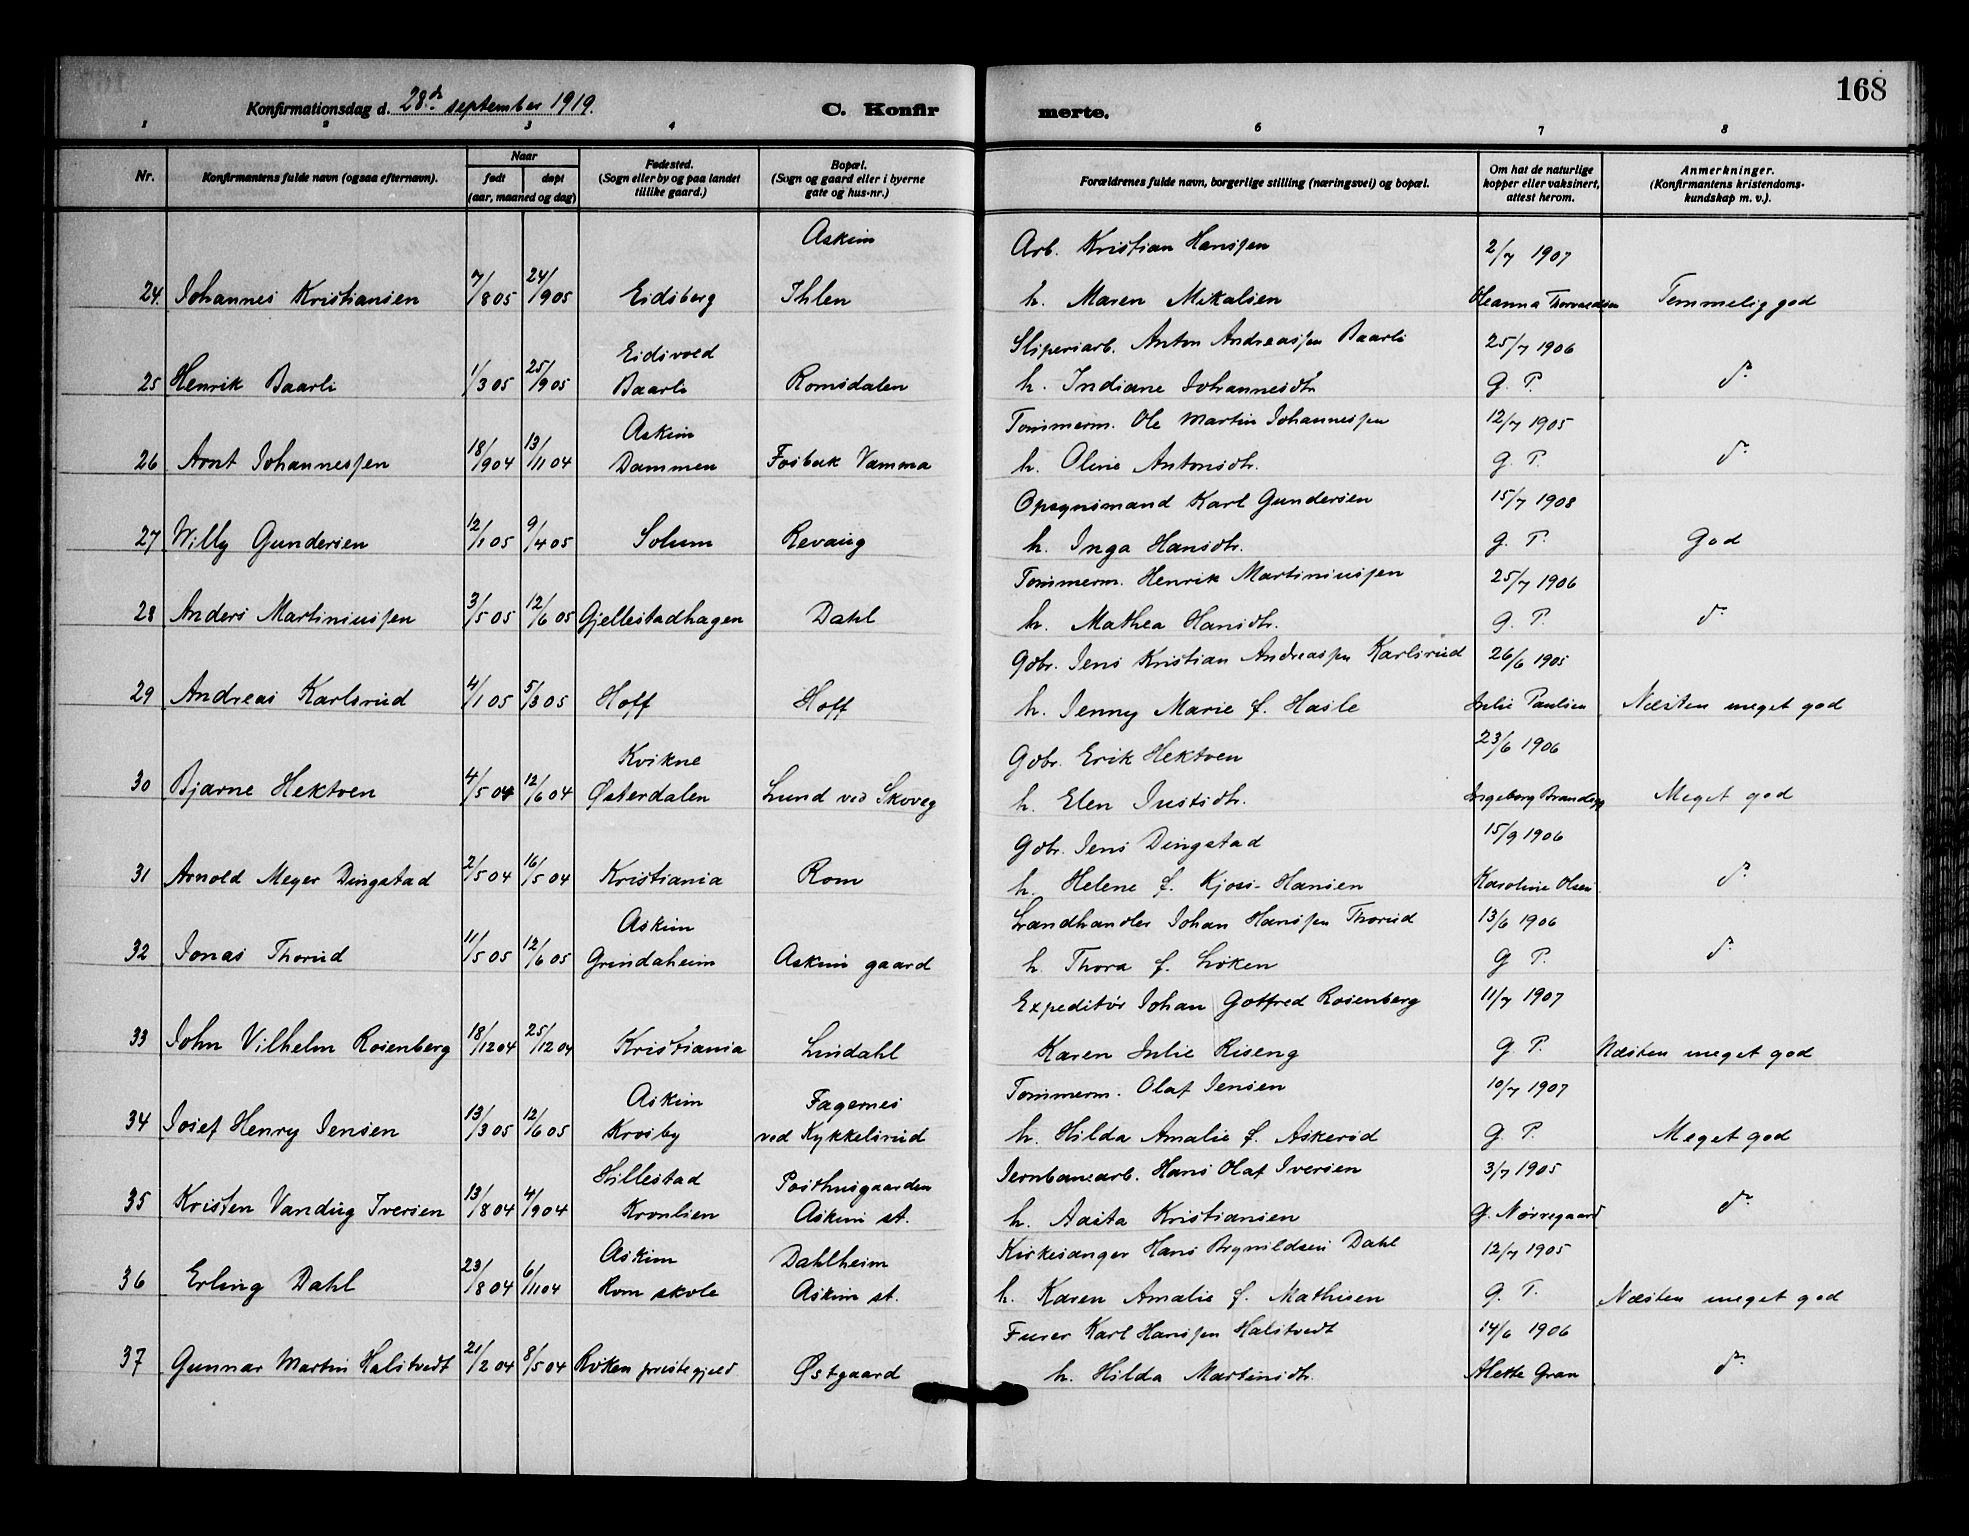 168
Konfirmationsdag d. 28de september 1919. C. Konfirmerte.
1 2 3 4 6 7 8
Nr. Konfirmantens fulde navn (ogsaa efternavn). Naar født døpt (aar, maaned og dag) Fødested. (Sogn eller by og paa landet tillike gaard.) Bopæl. (Sogn og gaard eller i byerne gate og hus-nr.) Forældrenes fulde navn, borgerlige stilling (næringsvei) og bopæl. Om hat de naturlige kopper eller vaksinert, attest herom. Anmerkninger. (Konfirmantens kristendomskundskap m. v.).
Askim Arb. Kristian Hanssen 2/7 1907
24. Johannes Kristiansen 7/8 05 24/9 05 Eidsberg Ihlen h. Maren Mikalsen Oleanna Thorvaldsen Temmelig god
Eidsvold Sliperiarb. Anton Andreassen Baarli 25/7 1906
25 Henrik Baarli 1/3 05 25/9 05 Baarli Romsdalen h. Indiane Johannesdtr. G. P. do.
Askim Tømmerm. Ole Martin Johannessen 12/7 1905
26 Arnt Johannessen 18/9 04 13/11 04 Dammen Fosbæk Vamma h. Oline Antonsdtr. G. P. do.
Opsynsmand Karl Gundersen 15/7 1908
27 Willy Gundersen 12/1 05 9/4 05 Solum Revaug h. Inga Hansdtr. G. P. God
Tømmerm. Henrik Martiniussen 25/7 1906
28 Anders Martiniussen 3/5 05 12/6 05 Gjellestadhagen Dahl h. Mathea Hansdtr. G. P. do.
Gbr. Jens Kristian Andreassen Karlsrud 26/6 1905
29 Andreas Karlsrud 4/1 05 5/3 05 Hoff Hoff h. Jenny Marie f. Hasle Julie Paulsen Næsten meget god
Kvikne Gbr. Erik Hektoen 23/6 1906
30 Bjarne Hektoen 4/5 04 12/6 04 Østerdalen Lund ved Skoveg h. Elen Justsdtr. Ingeborg Brandsgg Meget god
Gbr. Jens Dingstad 15/9 1906
31 Arnold Meyer Dingstad 2/5 04 16/5 04 Kristiania Rom h. Helene f. Kjos-Hansen Karoline Olsen do.
Askim Landhandler Johan Hanssen Thorud 13/6 1906
32 Jonas Thorud 11/5 05 12/6 05 Grindaheim Askim gaard h. Thora f. Løken G P. do.
Expeditør Johan Gotfred Rosenberg 11/7 1907
33 John Vilhelm Rosenberg 18/12 04 25/12 04 Kristiania Lindahl Karen Julie Riseng G P. Næsten meget god
Askim Fagernes Tømmerm. Olaf Jensen 10/7 1907
34 Josef Henry Jensen 13/3 05 12/6 05 Krosby ved Kykkelsrud h. Hilda Amalie f. Askerød G. P. Meget god
Hillestad Posthusgaarden Jernbanearb. Hans Olaf Iversen 3/7 1905
35 Kristen Vandug Iversen 13/8 04 4/9 04 Kronlien Askim st. h. Aasta Kristiansen G. Nørregaard do.
Askim Dahlheim Kirkesanger Hans Brynildsen Dahl 12/7 1905
36 Erling Dahl 23/8 04 6/11 04 Rom skole Askim st. h. Karen Amalie f. Mathisen G. P. Næsten meget god
Furer Karl Hanssen Halstvedt 14/6 1906
37 Gunnar Martin Halstvedt 21/2 04 8/5 04 Røken prestegjeld Østgaard h. Hilda Martinsdtr. Alette Gran do.